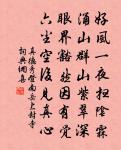 好風一夜掃陰
涌出群山紫翠深
眼界豁然因有覺
六塵空後見真心
真德秀登南岳上封寺
詞典網